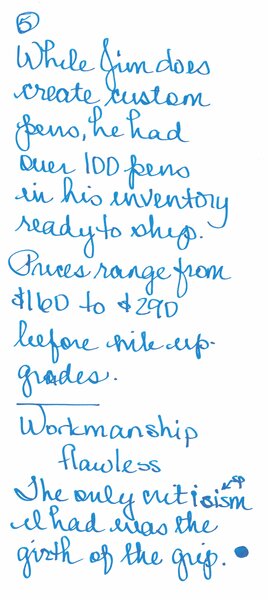 5
While Jim does
create custom
pens, he had
over 100 pens
in his inventory
ready to ship.
Prices range from
$160 to $290
before nib up-
grades.
Workmanship
flawless
sp
The only criticism
I had was the
girth of the grip.